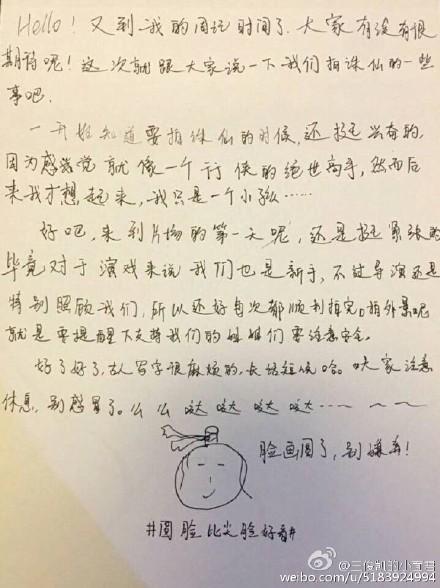 Hello！又到我的周记时间了.大家有没有很
期待呢！这次就跟大家说一下我们拍诛仙的一些
事吧.
一开始知道要拍诛仙的时候,还挺兴奋的,
因为感觉就像一个行侠的绝世高手,然而后
来我才想起来,我只是一个小孩……
好吧,来到片场的第一天呢,还是挺紧张的
毕竟对于演戏来说我们也是新手,不过导演还是
特别照顾我们,所以还好每次都顺利拍完。拍外景呢
就是要提醒下支持我们的姐姐们要注意安全。
好了好了,古人写字很麻烦的,长话短说哈。大家注意
休息,别感冒了。么么哒哒哒哒……~~
脸画圆了,别嫌弃！
#圆脸比尖脸好看#
@三俊凯的小首君
weibo.com/u/5183924994